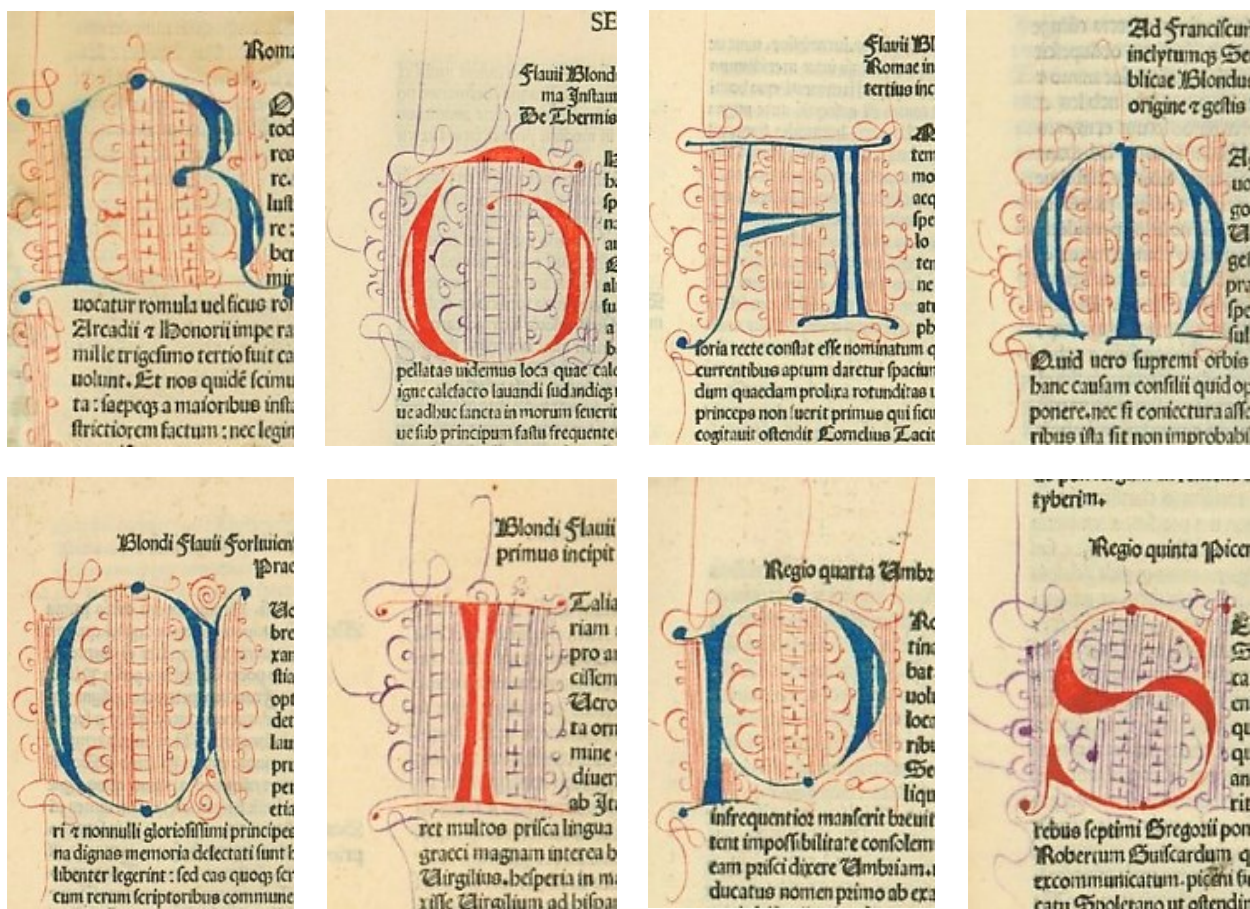 R
Roma
tod
res
re.
lust
re:
ber
min
uocatur romula uel ficus rom
Arcadii ⁊ Honorii impe ra
mille trigesimo tertio fuit ca
uolunt. Et nos quidē scimu
ta: saepeqꝫ a maioribus insta
strictiorem factum: nec legin
SE
Flauii Blond
ma Instau
De Thermis
O
ba
sp
fu
a
b
pellatas uidemus loca quae cale
igne calefacto lauandi sudandiqꝫ
ue adhuc sancta in morum seuerit
ue sub principum fastu frequente
Flauii Bl
Romae in
tertius inc
A
tem
mo
acq
spe
lo
ten
ne
atu
ph
soria recte constat esse nominatum q
currentibus aptum daretur spacium
dum quaedam prolixa rotunditas u
princeps non fuerit primus qui ficu
cogitauit ostendit Cornelius Tacit
Ad Franciscum
inclytumqꝫ Se
blicae Blondus
origine ⁊ gestis
M
A
uo
go
U
gel
pra
spo
sus
Quid uero supremi orbis
hanc causam consilii quid op
ponere. nec si coniectura asse
ribus ista sit non improbabi
Blondi Flauii Forliuien
Prae
U
Ue
bre
xan
stia
opt
det
lau
pru
per
etia
ri ⁊ nonnulli gloriosissimi principes
na dignas memoria delectati sunt h
libenter legerint: sed eas quoqꝫ scr
cum rerum scriptoribus commune
Blondi Flauii
primus incipit
I
Talia
riam
pro a
cissem
Uero
ta orn
mine
diuer
ab Ita
ret multos prisca lingua
graeci magnam interea b
Uirgilius. hesperia in ma
xisse Uirgilium ad hispan
Regio quarta Umbr
P
Ro
tina
bat
uolu
loca
ribu
Se
liqu
infrequentior manserit breuit
tent impossibilitate consolem
eam prisci dixere Umbriam.
ducatus nomen primo ab exa
tyberim.
Regio quinta Picen
S
ca
en
qu
qu
an
rit
rebus septimi Gregorii pon
Robertum Guiscardum q
excommunicatum. piceni fi
catu Spoletano ut ostendim